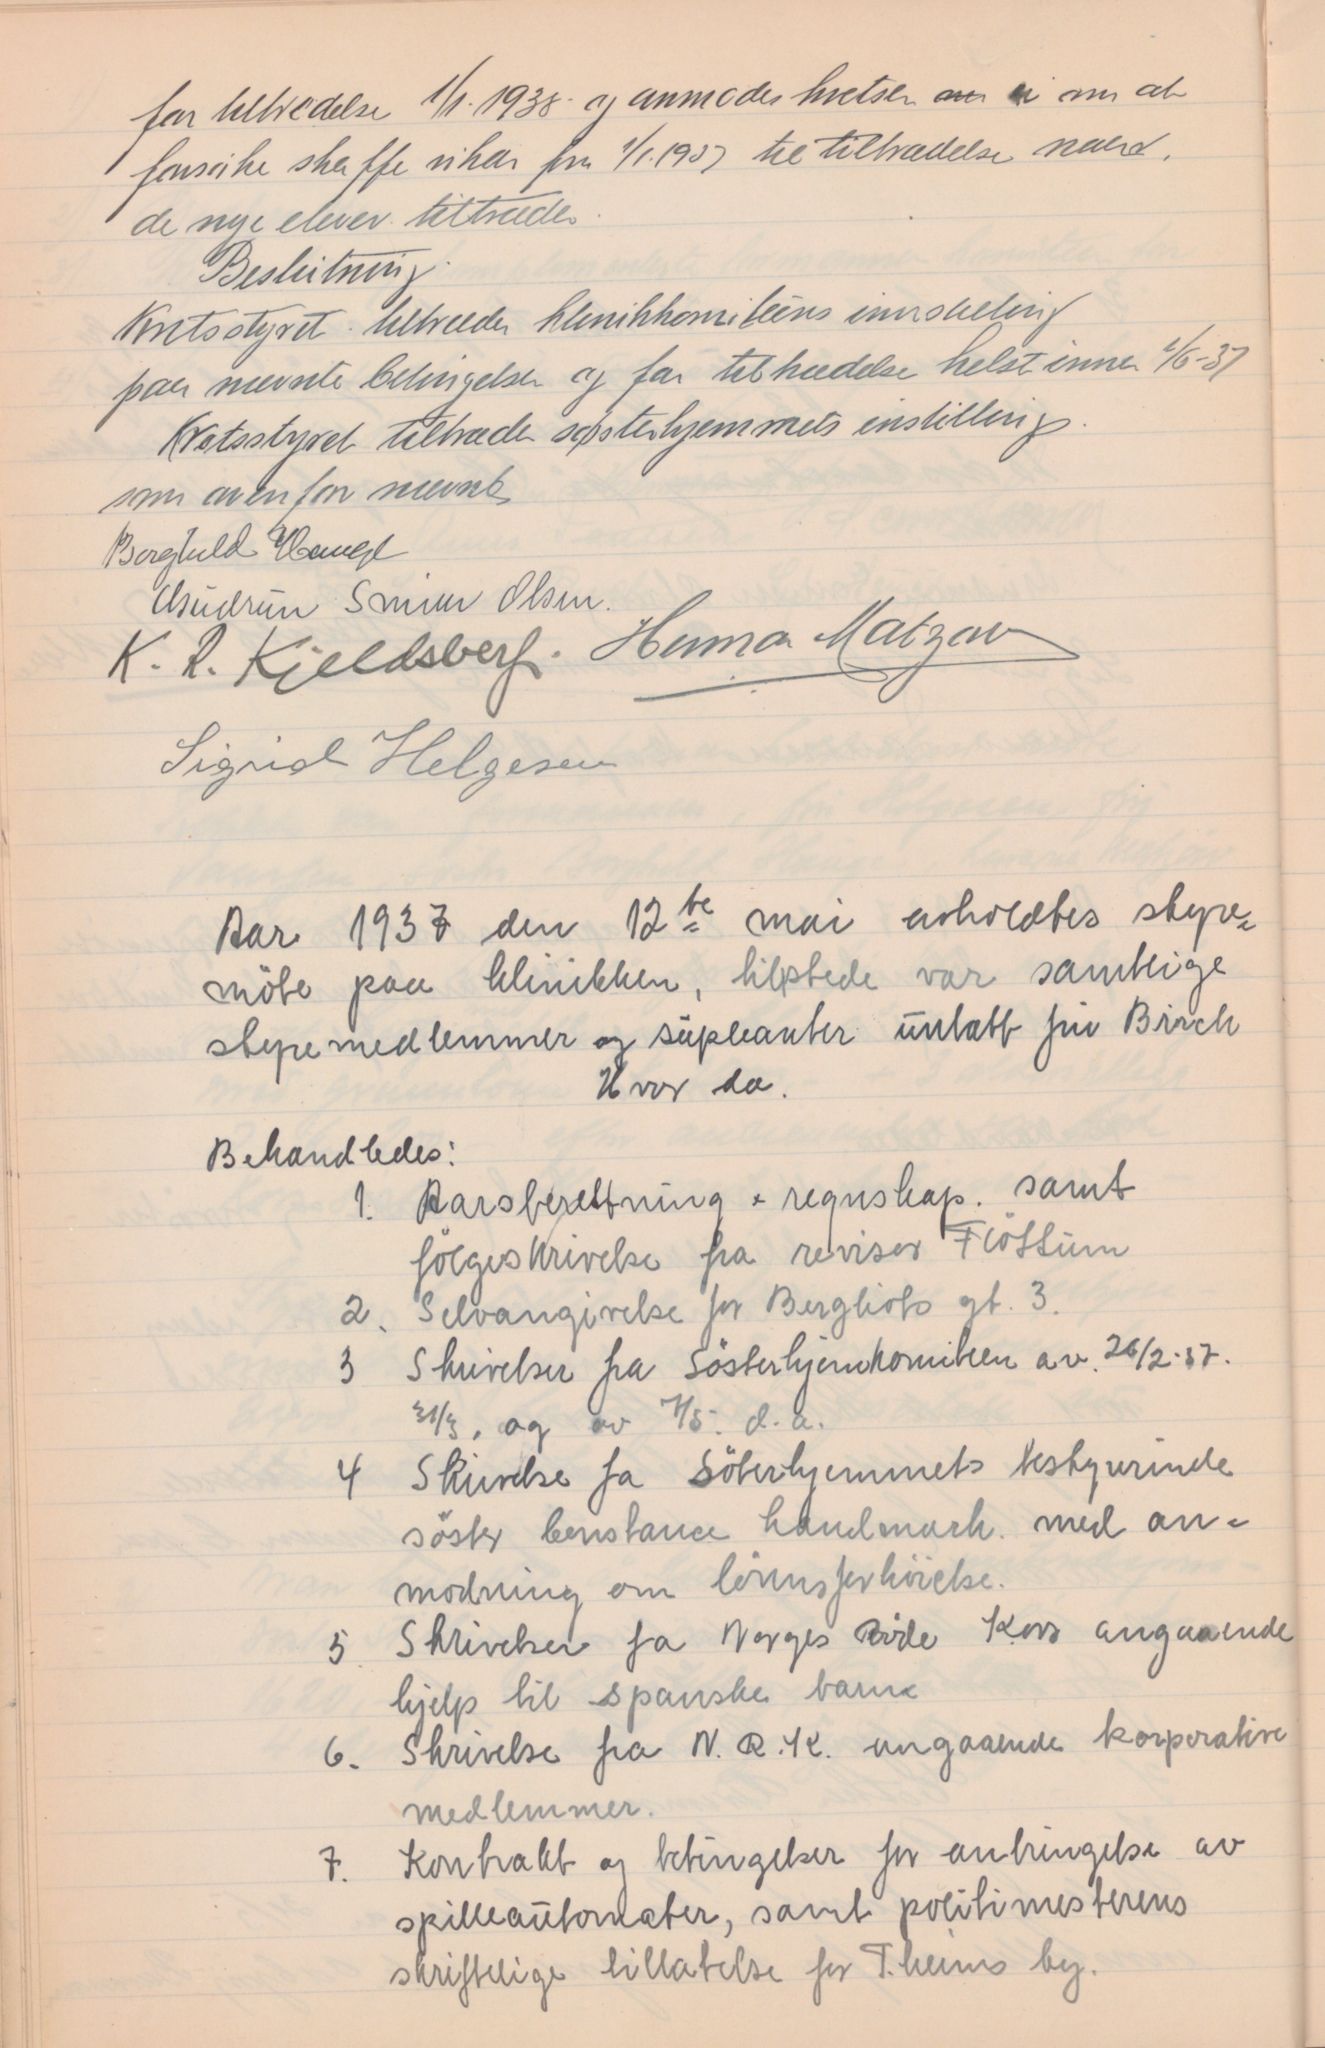 for tiltredelse 1/1. 1938 og anmodes kretsen om at
forsöke skaffe vikar fra 1/1. 1937 til tiltrædelse naar
de nye elever tiltræder.
Beslutning.
Kretsstyret tiltræder klinikkomiteens innstilling
paa nævnte betingelser og for tiltrædelse helst innen 1/6-37
Kretsstyret tiltræder søsterhjemmets instilling
som ovenfor nævnt
Borghild Hauge
Gudrun Olsen.
K. R. Kjeldsberg. Henna Matzow
Sigrid Helgesen
Aar 1937 den 12te mai avholdtes styre=
möte paa klinikken, tilstede var samtlige
styremedlemmer og supleanter untatt fru Birch
Hvor da.
Behandledes:
1. Aarsberettning + regnskap. samt
fölgeskrivelse fra revisor Flöttum
2. Selvangivelse for Bergliots gt. 3.
3 Skrivelser fra Sösterhjemkomiteen av. 26/2-37.
31/3, og av 7/5. d. a.
4 Skrivelse fra Sösterhjemmets bestyrerinde
söster Constance Haudmark. med an=
modning om lönnsforhöielse.
5 Skrivelser fra Norges Röde Kors angaaende
hjelp til spanske barn
6. Skrivelse fra N. R. K. angaaende korporative
medlemmer.
7. Kontrakt og betingelser for anbringelse av
spilleautomater, samt politimesterens
skriftlige tillatelse for T.heims by.